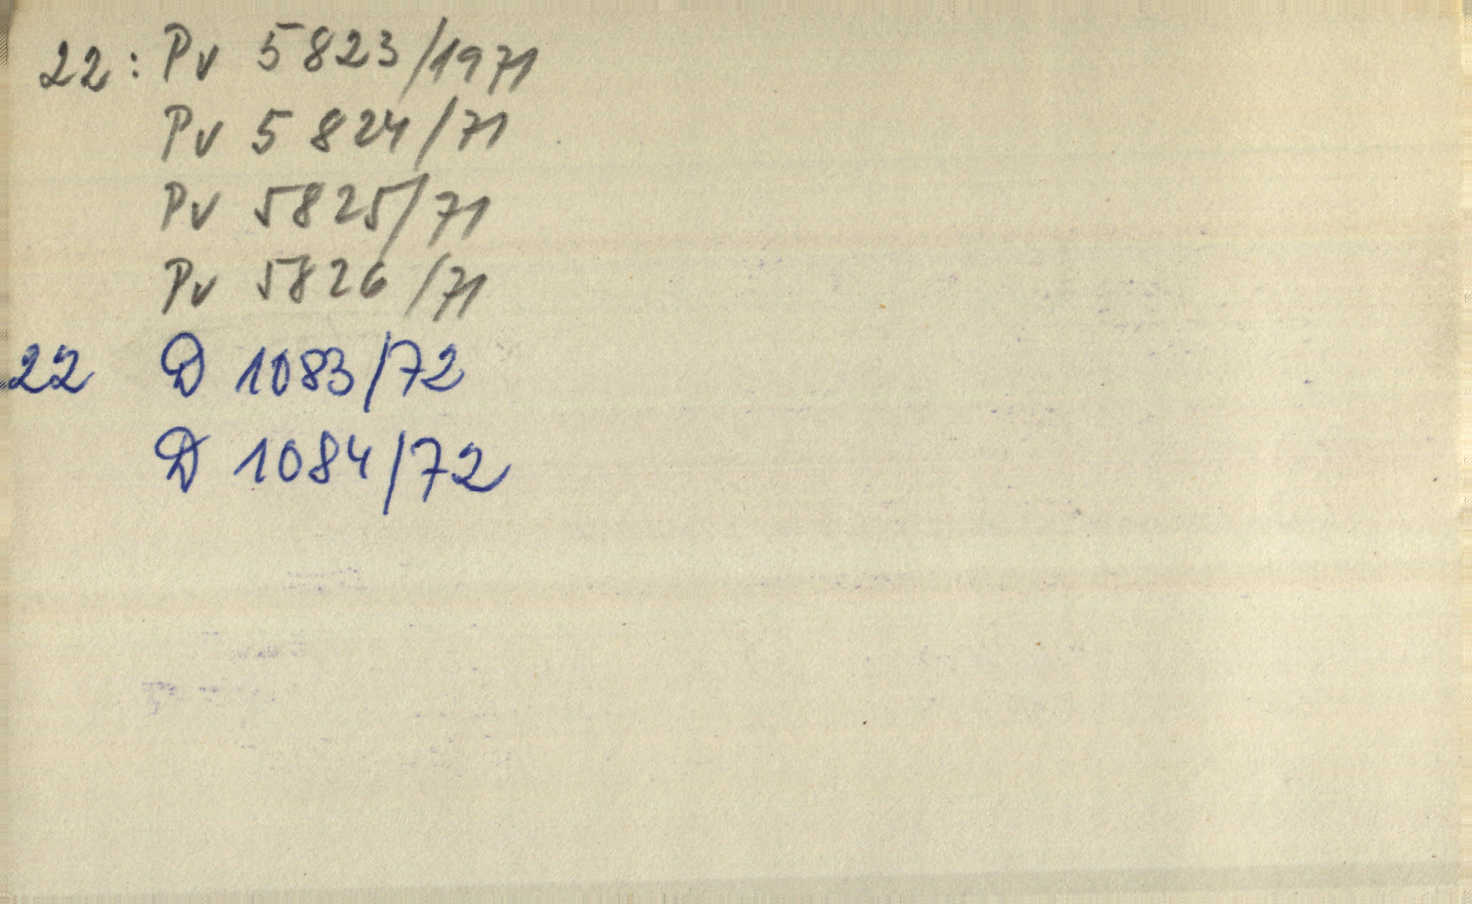 22: Pv 5823/1971
Pv 5824/71
Pv 5825/71
Pv 5826/71
22 D 1083/72
D 1084/72